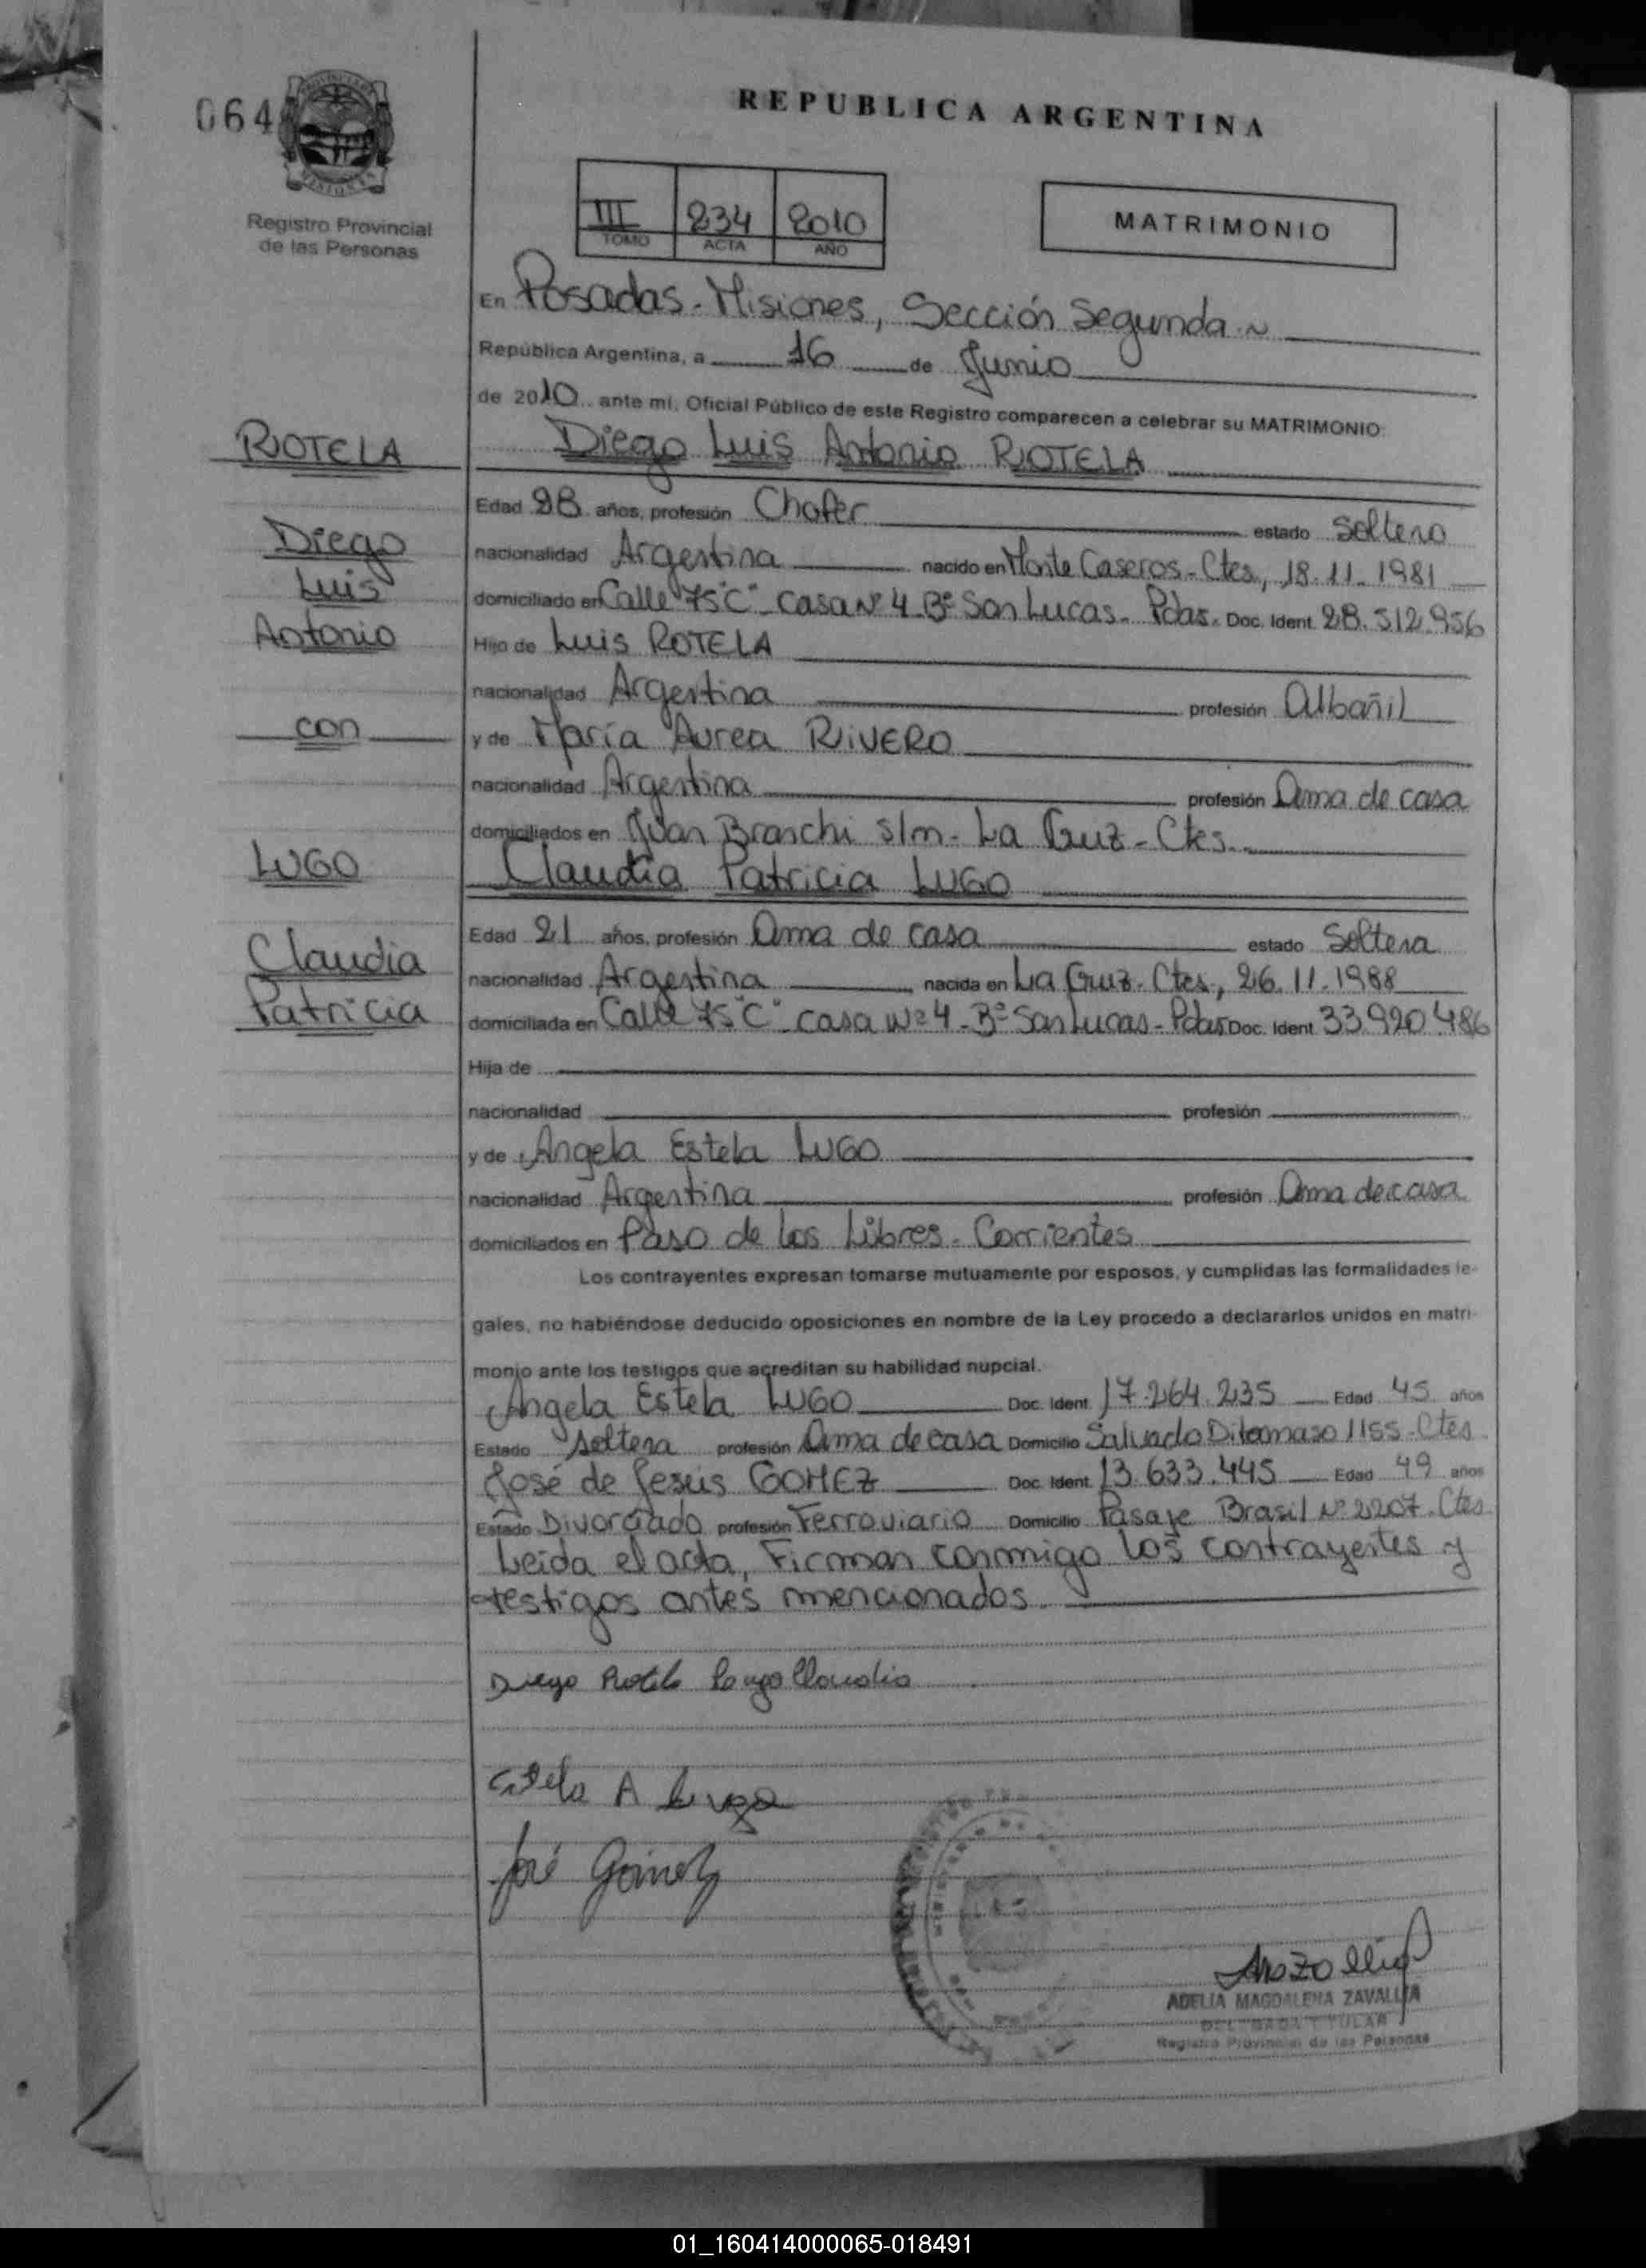 064
PROVINCIA
MISIONES
Registro Provincial
de las Personas
REPUBLICA ARGENTINA
III 234 2010
TOMO ACTA AÑO
MATRIMONIO
En Posadas - Misiones, Sección Segunda ~
República Argentina, a 16 de Junio
de 2010 ante mí, Oficial Público de este Registro comparecen a celebrar su MATRIMONIO:
ROTELA
Diego Luis Antonio ROTELA
Edad 28 años, profesión Chofer estado Soltero
Diego
nacionalidad Argentina nacido en Monte Caseros - Ctes, 18.11.1981
Luis
domiciliado en Calle 75 "C" - casa Nº 4 - Bº San Lucas - Pdas. Doc. Ident. 28.512.956
Antonio
Hijo de Luis ROTELA
nacionalidad Argentina profesión Albañil
con
y de María Aurea RIVERO
nacionalidad Argentina profesión Ama de casa
domiciliados en Juan Branchi s/m - La Cruz - Ctes.
LUGO
Claudia Patricia LUGO
Edad 21 años, profesión Ama de casa estado Soltera
Claudia
nacionalidad Argentina nacida en La Cruz - Ctes, 26.11.1988
Patricia
domiciliada en Calle 75 "C" - casa Nº 4 - Bº San Lucas - Pdas Doc. Ident. 33.920.486
Hija de
nacionalidad profesión
y de Angela Estela LUGO
nacionalidad Argentina profesión Ama de casa
domiciliados en Paso de los Libres - Corrientes
Los contrayentes expresan tomarse mutuamente por esposos, y cumplidas las formalidades le-
gales, no habiéndose deducido oposiciones en nombre de la Ley procedo a declararlos unidos en matri-
monio ante los testigos que acreditan su habilidad nupcial.
Angela Estela LUGO Doc. Ident. 17.264.235 Edad 45 años
Estado soltera profesión Ama de casa Domicilio Salvado Ditomaso 1155 - Ctes
José de Jesús GOMEZ Doc. Ident. 13.633.445 Edad 49 años
Estado Divorciado profesión Ferroviario Domicilio Pasaje Brasil Nº 2207 - Ctes
Leida el acta, Firman conmigo los contrayentes y
testigos antes mencionados.
Diego Rotela Lugo Claudia
Estela A Lugo
José Gómez
ADELIA MAGDALENA ZAVALLIA
DELEGADA TITULAR
Registro Provincial de las Personas
01_160414000065-018491